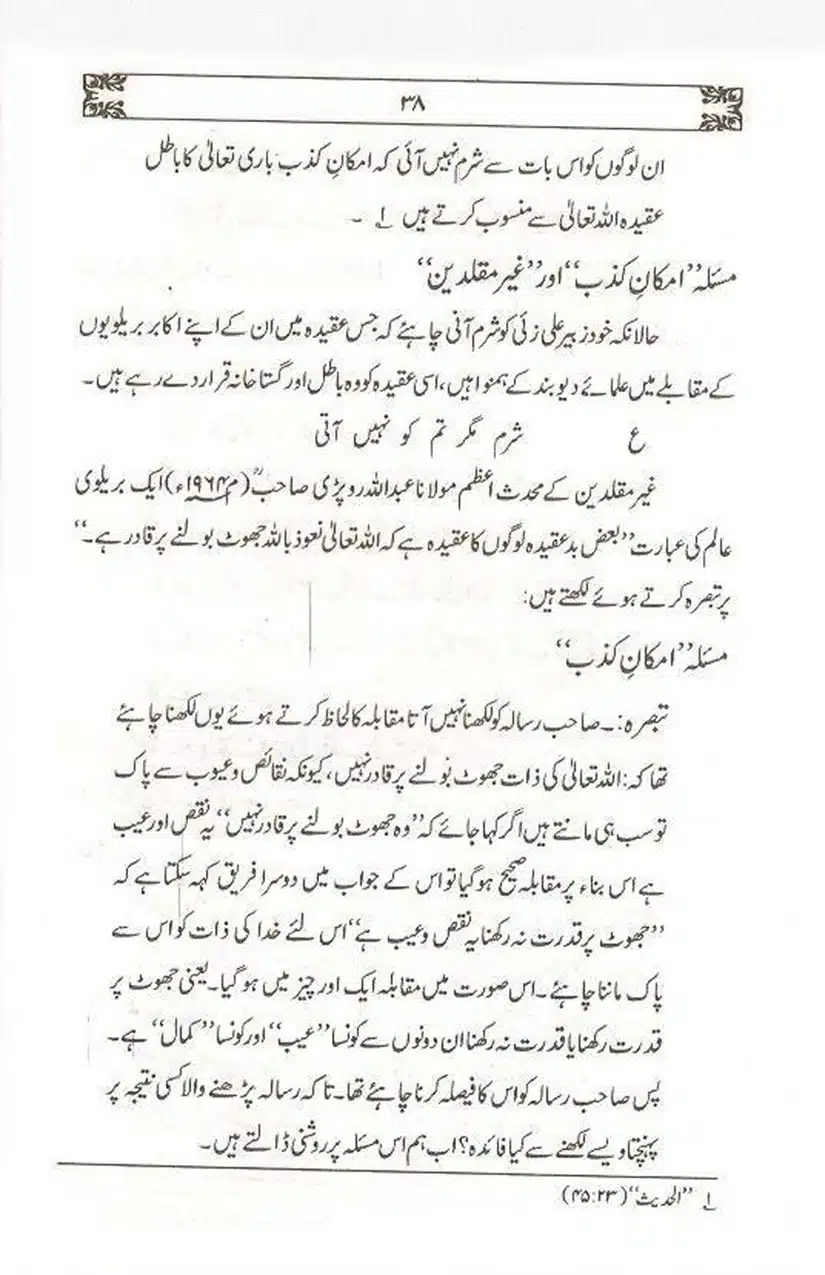 ۳۸
ان لوگوں کو اس بات سے شرم نہیں آئی کہ امکانِ کذب باری تعالیٰ کا باطل
عقیدہ اللہ تعالیٰ سے منسوب کرتے ہیں ۱؎ ۔
مسئلہ ’’امکانِ کذب‘‘ اور ’’غیر مقلدین‘‘
حالانکہ خود زبیر علی زئی کو شرم آنی چاہئے کہ جس عقیدہ میں ان کے اپنے اکابر بریلویوں
کے مقابلے میں علمائے دیوبند کے ہمنوا ہیں، اسی عقیدہ کو وہ باطل اور گستاخانہ قرار دے رہے ہیں۔
ع شرم مگر تم کو نہیں آتی
غیر مقلدین کے محدث اعظم مولانا عبداللہ روپڑی صاحبؒ (م ۱۹۶۴ء) ایک بریلوی
عالم کی عبارت ’’بعض بد عقیدہ لوگوں کا عقیدہ ہے کہ اللہ تعالیٰ نعوذ باللہ جھوٹ بولنے پر قادر ہے۔‘‘
پر تبصرہ کرتے ہوئے لکھتے ہیں:
مسئلہ ’’امکانِ کذب‘‘
تبصرہ:۔ صاحب رسالہ کو لکھنا نہیں آتا مقابلہ کا لحاظ کرتے ہوئے یوں لکھنا چاہئے
تھا کہ: اللہ تعالیٰ کی ذات جھوٹ بولنے پر قادر نہیں، کیونکہ نقائص و عیوب سے پاک
تو سب ہی مانتے ہیں اگر کہا جائے کہ ’’وہ جھوٹ بولنے پر قادر نہیں‘‘ یہ نقص اور عیب
ہے اس بناء پر مقابلہ صحیح ہو گیا تو اس کے جواب میں دوسرا فریق کہہ سکتا ہے کہ
’’جھوٹ پر قدرت نہ رکھنا یہ نقص و عیب ہے‘‘ اس لئے خدا کی ذات کو اس سے
پاک ماننا چاہئے۔ اس صورت میں مقابلہ ایک اور چیز میں ہو گیا۔ یعنی جھوٹ پر
قدرت رکھنا یا قدرت نہ رکھنا ان دونوں سے کونسا ’’عیب‘‘ اور کونسا ’’کمال‘‘ ہے۔
پس صاحب رسالہ کو اس کا فیصلہ کرنا چاہئے تھا۔ تاکہ رسالہ پڑھنے والا کسی نتیجہ پر
پہنچتا ویسے لکھنے سے کیا فائدہ؟ اب ہم اس مسئلہ پر روشنی ڈالتے ہیں۔
۱؎ ’’الحدیث‘‘ (۴۵:۲۳)